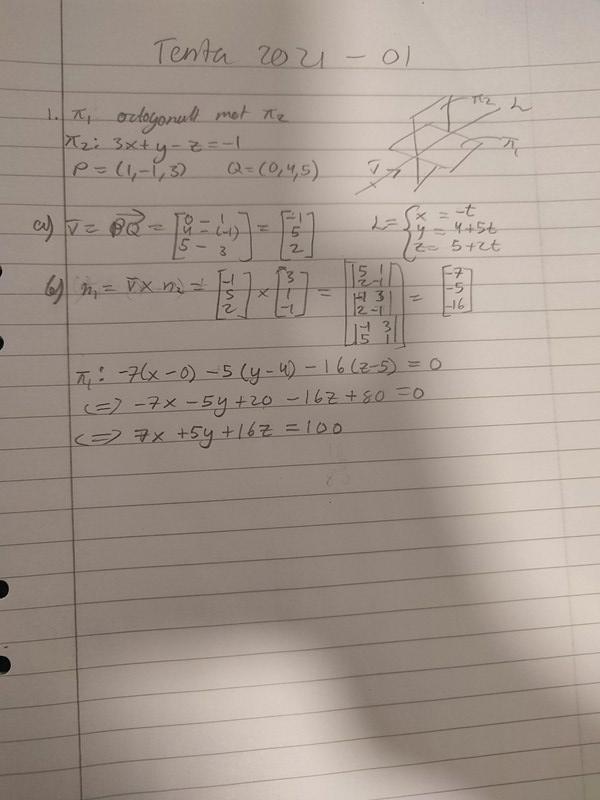 Tenta 2021 - 01
1. π₁ octogonalt mot π₂
π₂: 3x + y - z = -1
P = (1, -1, 3) Q = (0, 4, 5)
π₂ L π₁ v̄
a) v̄ = P̅Q⃗ = [0 - 1; 4 - (-1); 5 - 3] = [-1; 5; 2] L = { x = -t; y = 4 + 5t; z = 5 + 2t
b) n₁ = v̄ × n₂ = [-1; 5; 2] × [3; 1; -1] = [|5 1; 2 -1|; |-1 3; 2 -1|; |-1 3; 5 1|] = [-7; -5; -16]
π₁: -7(x - 0) - 5(y - 4) - 16(z - 5) = 0
<=> -7x - 5y + 20 - 16z + 80 = 0
<=> 7x + 5y + 16z = 100